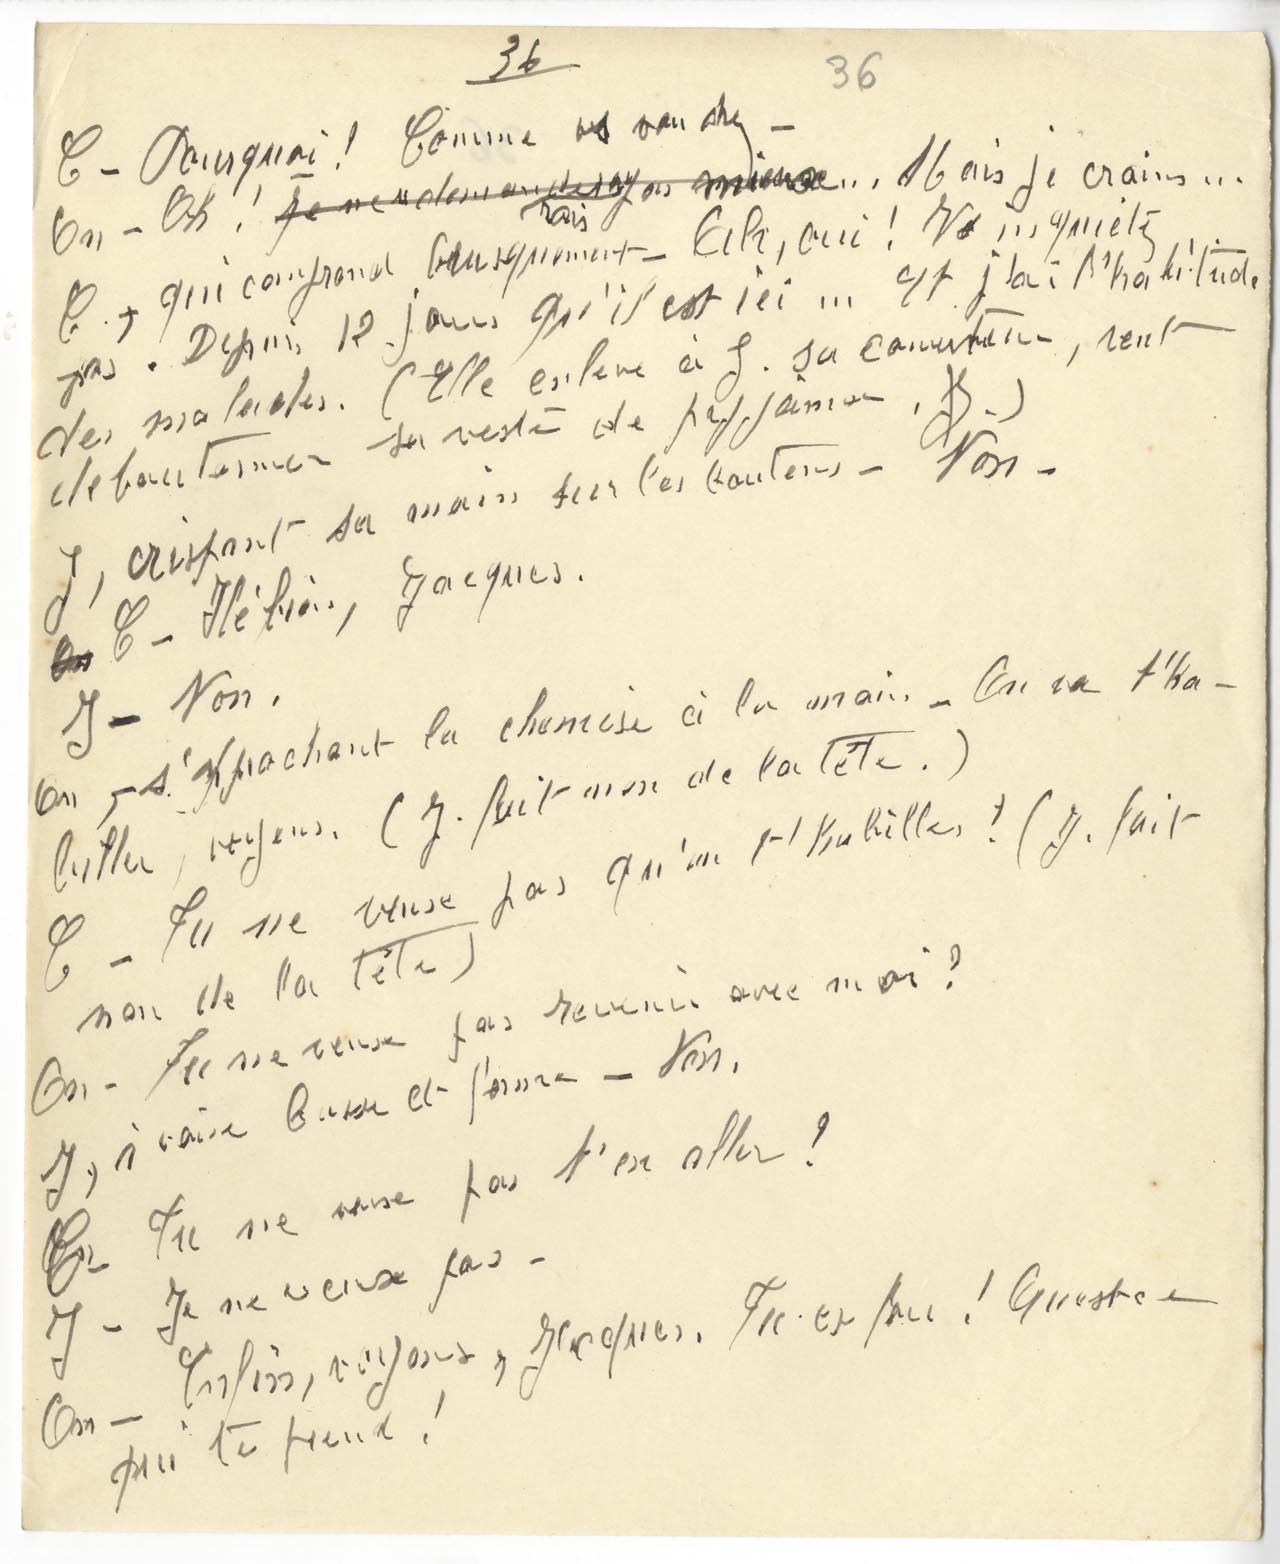 36 36
C – Pourquoi ! Comme vous voudrez –
On – Oh ! Je ne demanderais pas mieux... Mais je crains ...
C., qui comprend brusquement – Ah, oui ! Ne inquiétez
pas. Depuis 12 jours qu'il est ici ... et j'ai l'habitude
des malades. (Elle enlève à J. sa couverture, veut
déboutonner sa veste de pyjama. J.)
J, crispant sa main sur les boutons – Non –
C – Hé bien, Jacques.
J – Non.
On, s'approchant la chemise à la main – On va t'ha-
biller, voyons. (J. fait non de la tête.)
C – Tu ne veux pas qu'on t'habille ? (J. fait
non de la tête)
On – Tu ne veux pas revenir avec moi ?
J, à voix basse et ferme – Non.
On – Tu ne veux pas t'en aller ?
J – Je ne veux pas –
On – Enfin, voyons, Jacques. Tu es fou ! Qu'est-ce
qui te prend !